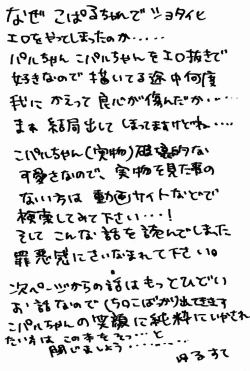 なぜ こぱるちゃんで ショタイヒ
エロをやってしまったのか・・・・・
パルちゃん こパルちゃんをエロ抜きで
好きなので 描いてる途中何度
我に かえって 良心が傷んだか・・・・
まぁ 結局出して しまってますけどね・・・・
こパルちゃん(実物)破壊的な
可愛さなので、実物を見た事の
ない方は 動画サイトなどで
検索してみて下さい・・・!
そして こんな話を読んでしまった
罪悪感にさいなまれて下さい。
次ページからの話はもっとひどい
お話なので(ちんこばっかり出てきます
こパルちゃんの笑顔に純粋にいやされ
たい方は この本をそっ・・・と
閉じましょう・・・・・・・・